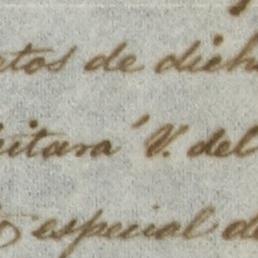 etos de dich
eitara' V. del
especial de